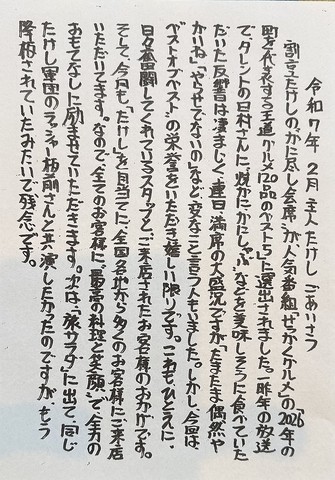 令和7年 2月 主人たけし ごあいさつ
割烹たけしの「かに尽し会席」が、人気番組「せっかくグルメ」の2026年の
町を代表する王道グルメ120品のベスト5に選出されました。昨年の放送
で、タレントの日村さんに「焼がに・かにしゃぶ」などを美味しそうに食べていた
だいた反響は凄まじく、連日満席の大盛況ですが「たまたま偶然や
かいね」「やらせでないの」など、安きこと言う人もいました。しかし今回は
ベストオブベストの栄誉をいただき嬉しい限りです。これもひとえに、
日々奮闘してくれているスタッフと、ご来店されたお客様のおかげです。
そして、今月も「たけし」を目当てに、全国各地から多くのお客様にご来店
いただいてます。なので、全てのお客様に「最高の料理と笑顔」で、全力の
おもてなしに励ませていただきます。次は、「旅サラダ」に出て、同じ
たけし軍団のラッシャー板前さんと共演したかったのですが、もう
降板されていたみたいで残念です。